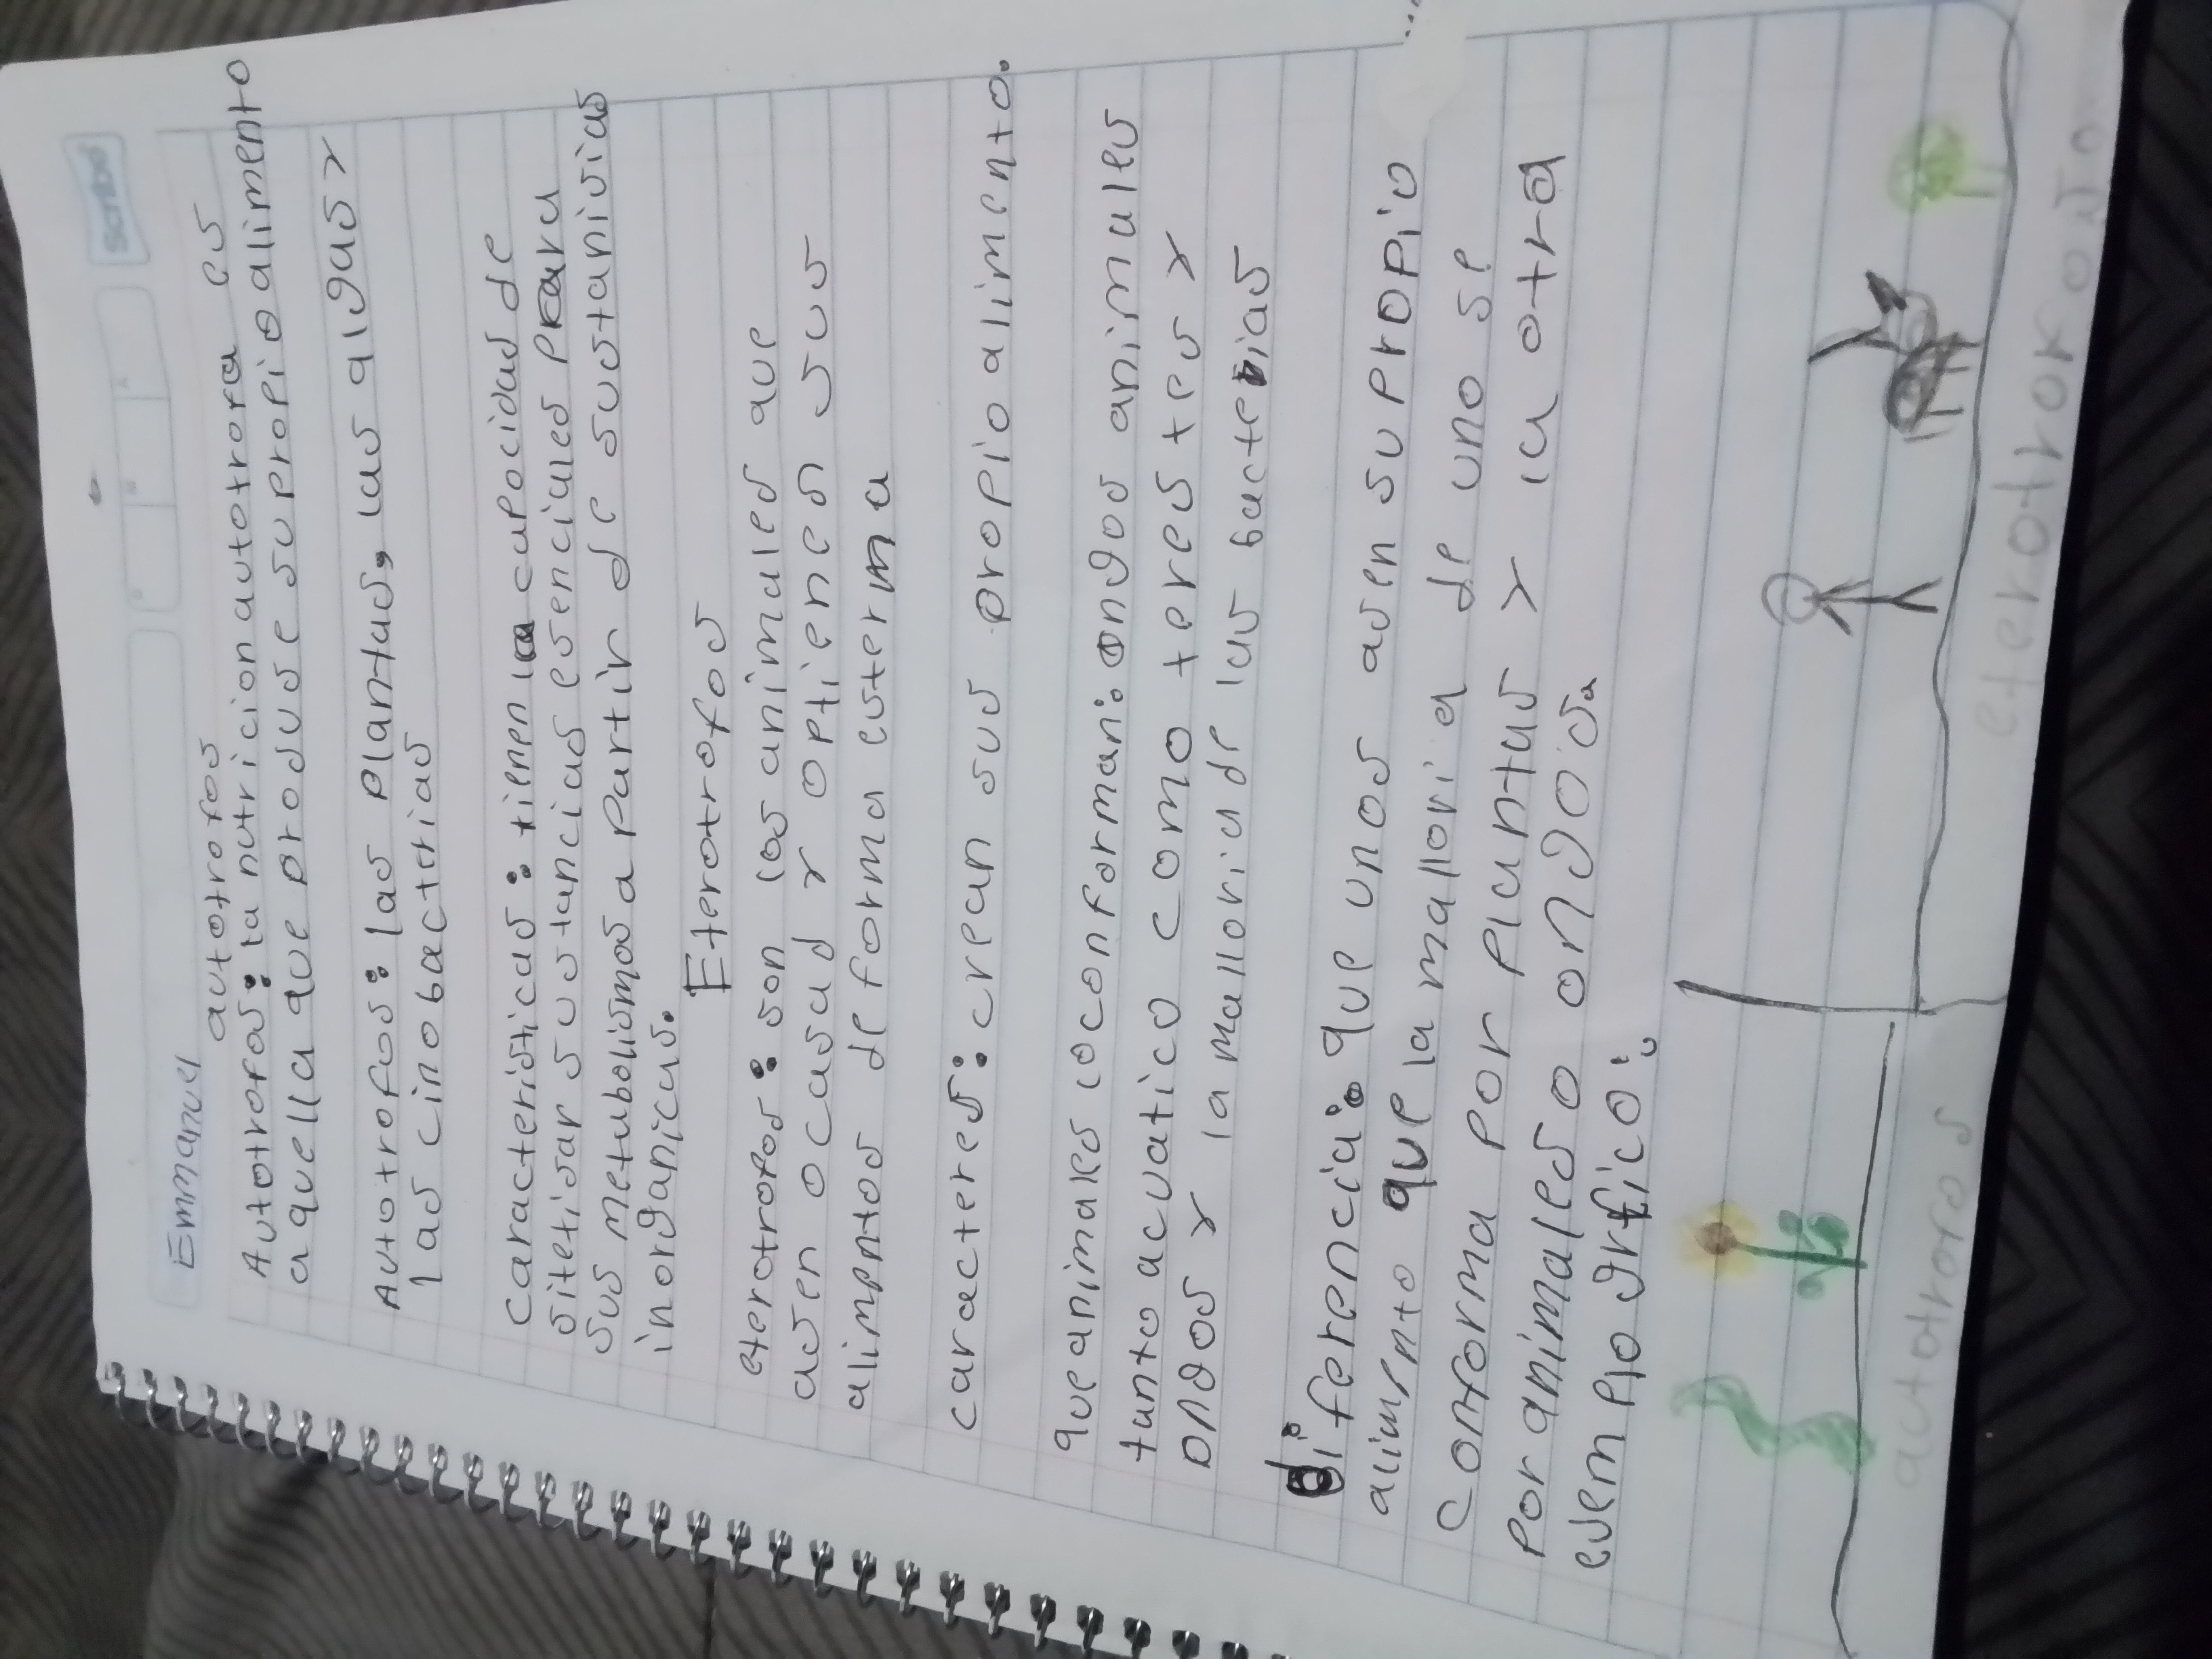 Scribe
Emmanuel
autotrofos
Autotrofas: la nutricion autotrofa es
aquella que produse su propio alimento
Autotrofos: las plantas, las algas y
las cinobacterias
caracteristicas: tienen la capocidad de
sitetisar sustancias esenciales para
sus metabolismos a partir de sustanisias
inorganicas.
Eterotrofos
eterotrofos: son los animales que
asen o casas y optienen sus
alimentos de forma esterna
caracteres: crean sus propio alimento.
que animales loconforman: ongos animales
tanto acuatico como teres tes y
ongos y la malloria de las bacterias
diferencia: que unos asen su propio
alimento que la malloria de uno se
conforma por plantas y la otra
Por animales o ongos.
esemplo grfico:
autotrofos
eterotrofos